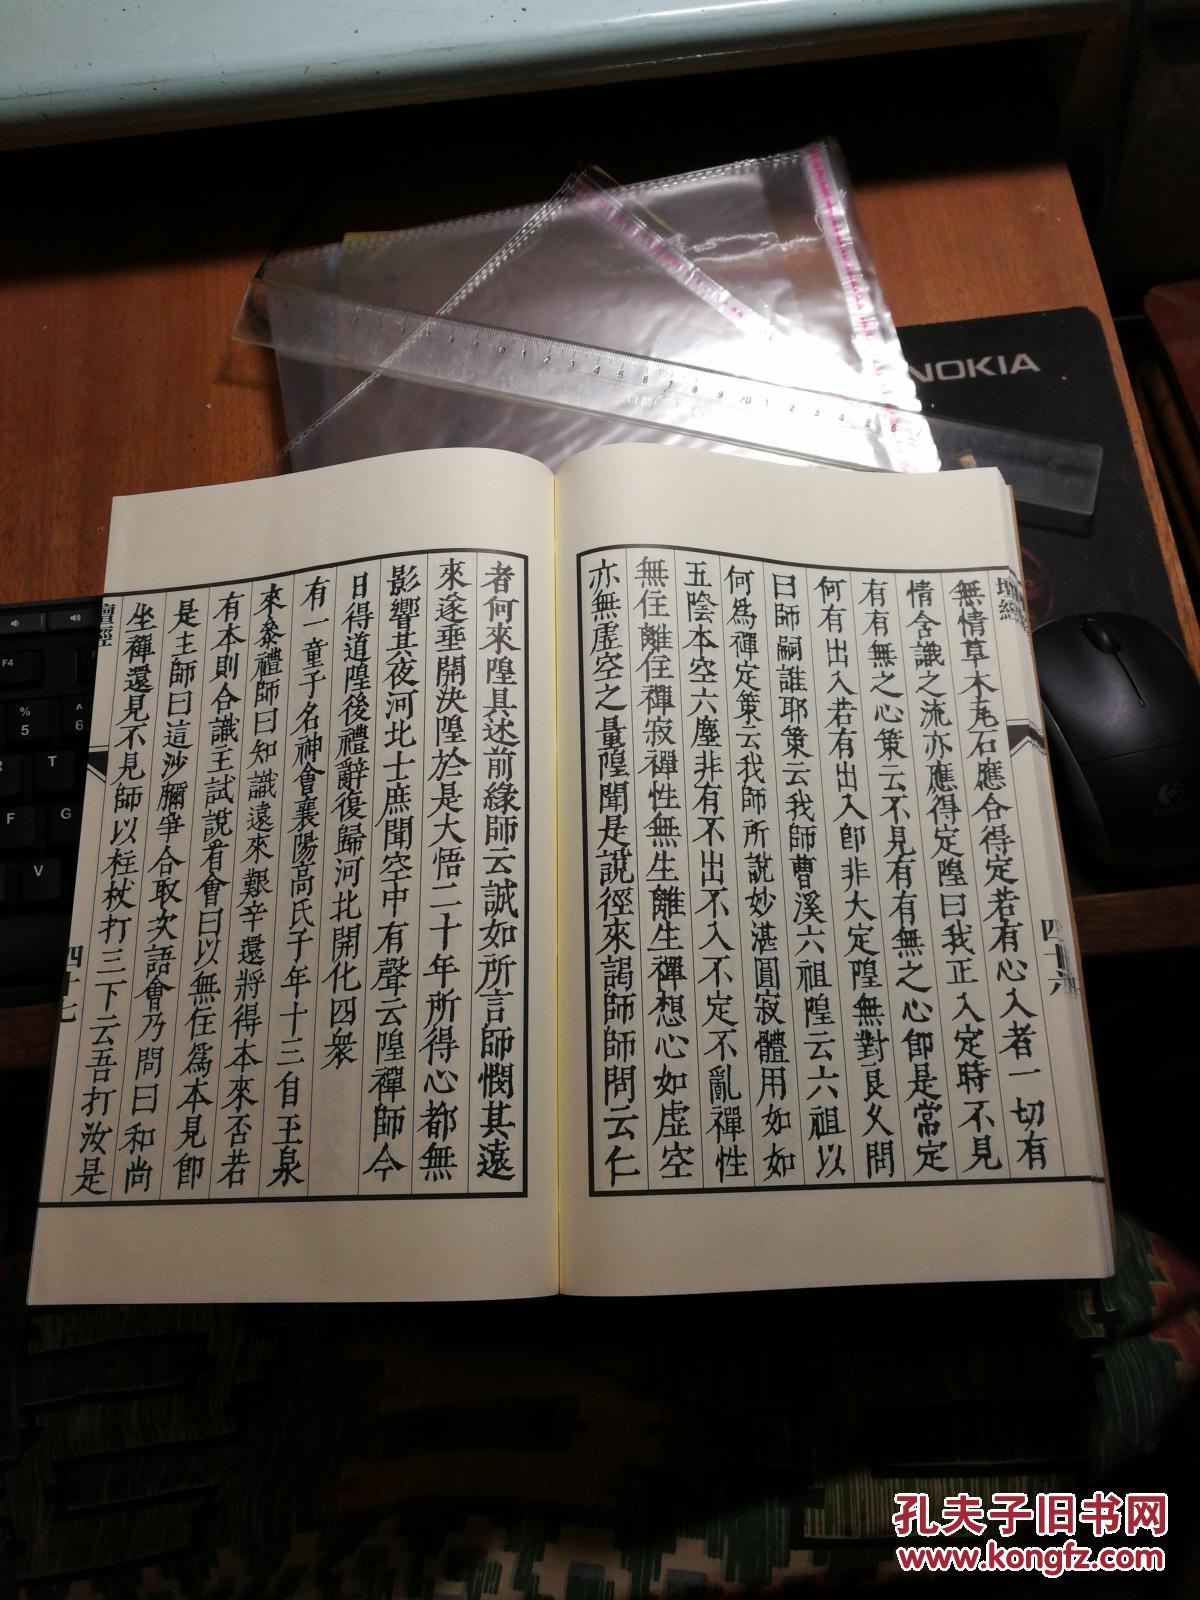 無情草木瓦石應合得定若有心入者一切有
情含識之流亦應得定隍曰我正入定時不見
有有無之心策云不見有有無之心即是常定
何有出入若有出入即非大定隍無對良久問
曰師嗣誰耶策云我師曹溪六祖隍云六祖以
何為禪定策云我師所說妙湛圓寂體用如如
五陰本空六塵非有不出不入不定不亂禪性
無住離住禪寂禪性無生離生禪想心如虛空
亦無虛空之量隍聞是說徑來謁師師問云仁
者何來隍具述前緣師云誠如所言師憫其遠
來遂垂開決隍於是大悟二十年所得心都無
影響其夜河北士庶聞空中有聲云隍禪師今
日得道隍後禮辭復歸河北開化四衆
有一童子名神會襄陽高氏子年十三自玉泉
來叅禮師曰知識遠來艱辛還將得本來否若
有本則合識主試說看會曰以無住爲本見即
是主師曰這沙彌爭合取次語會乃問曰和尚
坐禪還見不見師以柱杖打三下云吾打汝是
壇經
四十六
壇經
四十七
NOKIA
孔夫子旧书网
www.kongfz.com